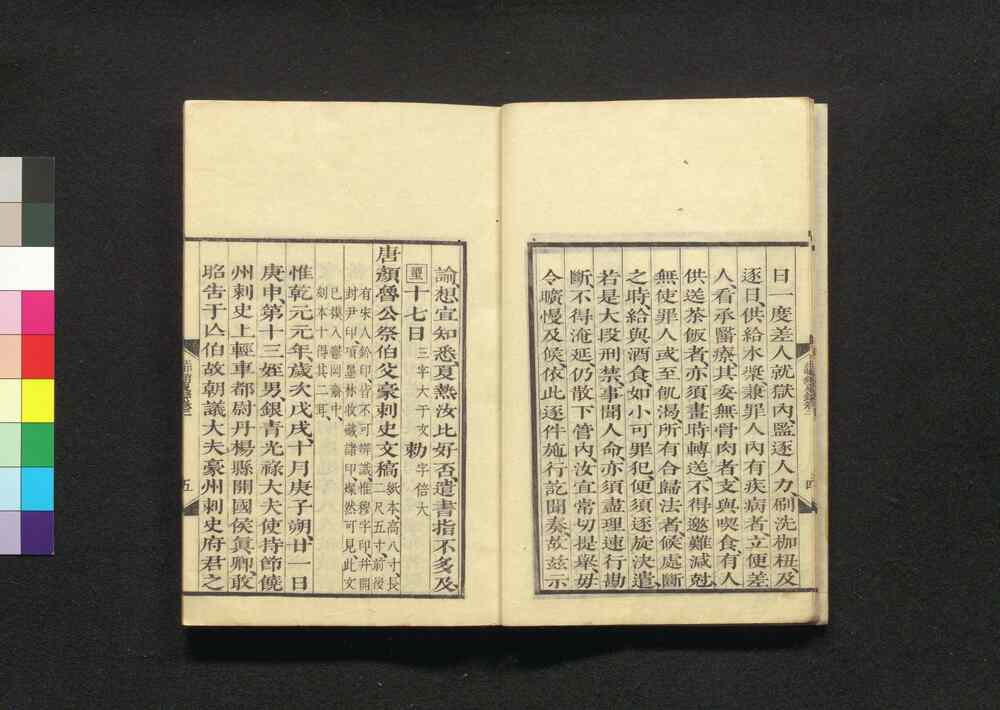 日一度差人就獄內、監逐人力、刷洗枷杻、及
逐日、供給水漿、兼罪人內有疾病者、立便差
人、看承醫療、其委無骨肉者、支與喫食、有人
供送茶飯者、亦須畫時轉送、不得邀難減剋
無使罪人或至飢渴、所有合歸法者、候處斷
之時、給與酒食、如小可罪犯、便須逐旋決遣
若是大段刑禁、事關人命、亦須盡理速行勘
斷、不得淹延、仍散下管內、汝宜常切提舉、毋
令曠慢、及候依此逐件施行訖聞奏、故茲示
四
諭、想宣知悉、夏熱、汝比好否、遣書指不多及
十七日 三字大于文 勅 字倍大
唐顏魯公祭伯父豪刺史文稿 紙本、高八寸、長二尺五寸、前後
有宋人鈐印、皆不可辨識、惟穆字印、幷開
封尹印、項墨林收藏諸印、燦然可見、此文
已摸入鬱岡齋中、
刻本十得其二耳、
惟乾元元年、歲次戊戌、十月庚子朔、廿一日
庚申、第十三姪男、銀青光祿大夫使持節饒
州刺史上輕車都尉丹楊縣開國侯眞卿、敢
昭吿于亾伯故朝議大夫豪州刺史府君之
五